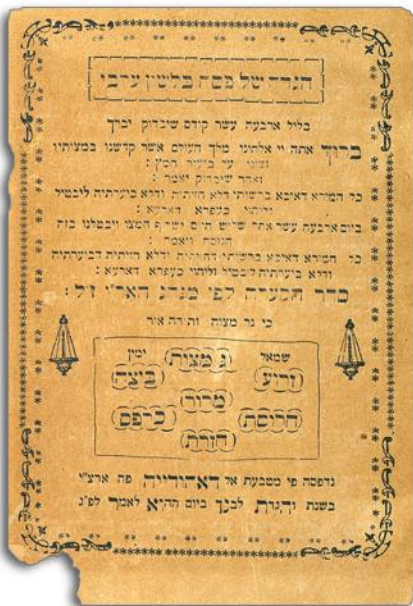 הגדה של פסח בלשון ערבי
בליל ארבעה עשר קודם שיבדוק יברך
ברוך אתה יי אלהינו מלך העולם אשר קדשנו במצותיו
וצונו על ביעור חמץ :
ואחר שיבדוק יאמר :
כל חמירא דאיכא ברשותי דלא חזיתיה ודלא ביערתיה ליבטיל
וליהוי כעפרא דארעא :
ביום ארבעה עשר אחר שלוש היום ושרף החמץ ויבטלנו בזה
הנוסח ויאמר :
כל חמירא דאיכא ברשותי דחזיתיה ודלא חזיתיה דביערתיה
ודלא ביערתיה ליבטיל וליהוי כעפרא דארעא :
סדר הקערה לפי מנהג האר״י ז״ל :
כי נר מצוה ותורה אור
שמאל ג מצות ימין
זרוע ביצה
מרור
חרוסת כרפס
חזרת
נדפסה פי מטבעת אל פה ארצ״י
בשנת והגדת לבנך ביום ההיא לאמר לפ״ג